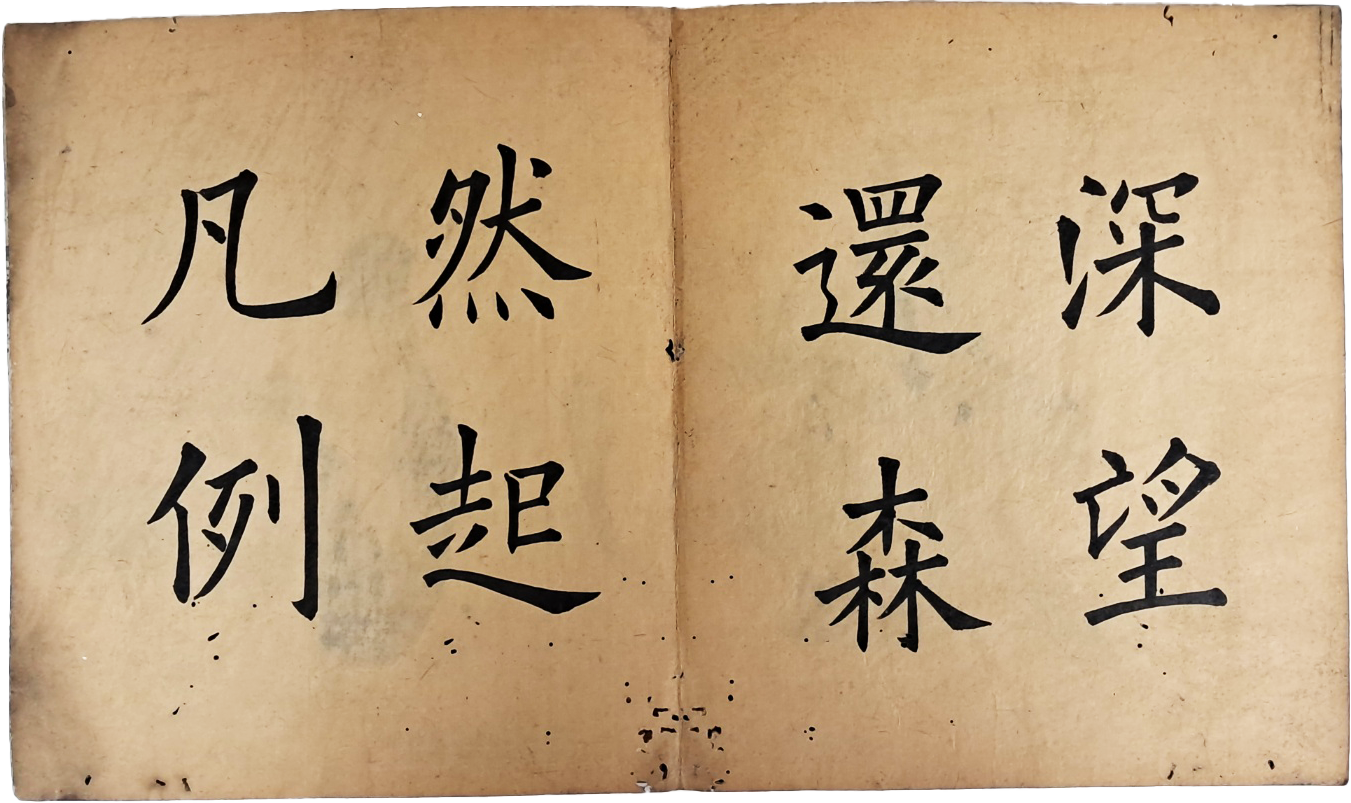 深望
還森
然起
凡例